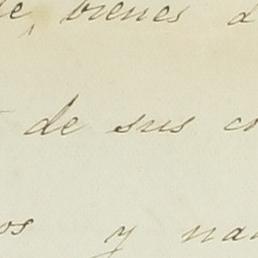 de, bienes d
de sus co
os y nan